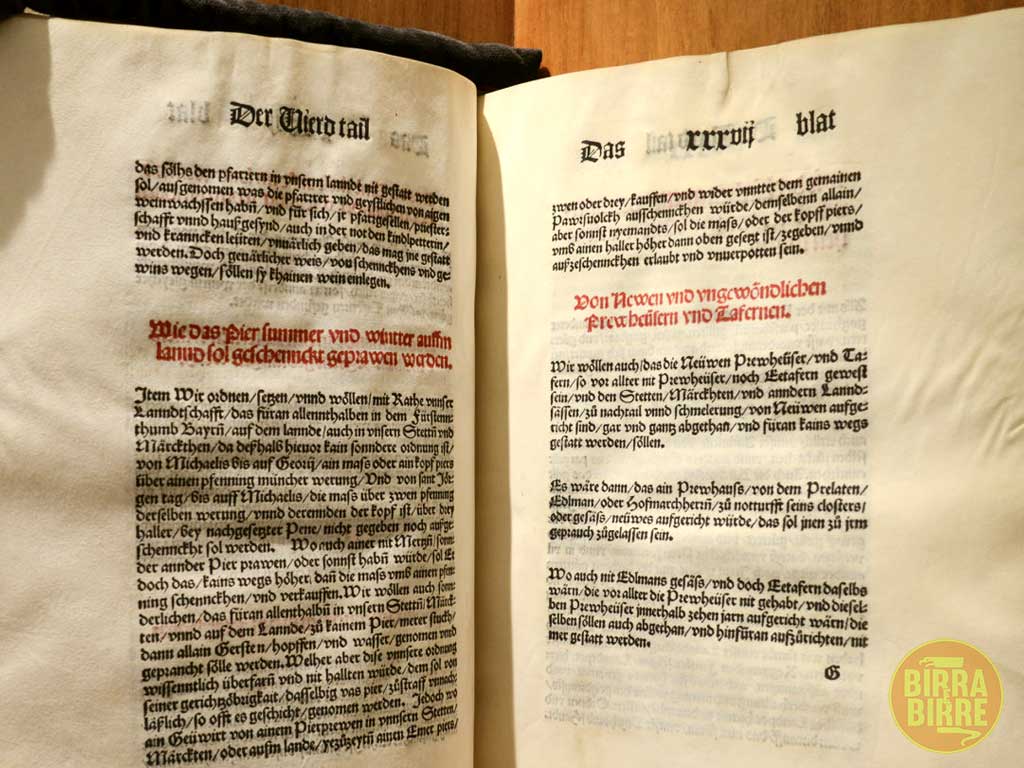 Der Vierd tail
das sölhs den pfarrern in vnserm lannde nit gestatt werden
sol/ausgenomen was die pfarrer vnd geystlichen von aigen
weinwachssen habn̄/vnd für sich/jr pfarrgesellen/priester-
schafft vnnd haußgesynd/auch in der not den kindlpetterin/
vnd kranncken leüten/vnuärlich geben/das mag jne gestatt
werden. Doch geuärlicher weis/von schennckhens vnd ge-
wins wegen/söllen sy khainen wein einlegen.
Wie das Pier summer vnd winter auffm
lannd sol geschennckt geprawen werden.
Item Wir ordnen/setzen/vnnd wöllen/mit Rathe vnnser
Lanndtschafft/das füran allennthalben in dem Fürstenn-
thumb Bayrn̄/auf dem lannde/auch in vnsern Stettn̄ vnd
Märckthen/da deßhalb hieuor kain sonndere ordnung ist/
von Michaelis bis auf Georij/ain mass oder ain kopf piers
über ainen pfenning müncher werung/Vnd von sant Jör-
gen tag/bis auff Michaelis/die mass über zwen pfenning
derselben werung/vnnd derennden der kopf ist/über drey
haller/bey nachgesetzter Pene/nicht gegeben noch aufge-
schennckht sol werden. Wo auch ainer nit Mertzn̄/sonn-
der annder Pier prawen/oder sonnst habn̄ würde/sol Er
doch das/kains wegs höher/dan̄ die mass vmb ainen pfen-
ning schennckhen/vnd verkauffen. Wir wöllen auch sonn-
derlichen/das füran allenthalbn̄ in vnsern Stettn̄/Märck-
ten/vnnd auf dem Lannde/zů kainem Pier/merer stuckh/
dann allain Gersten/hopffen/vnd wasser/genomen vnnd
gepraucht sölle werden. Welher aber dise vnnsere ordnung
wissenntlich überfarn̄ vnd nit hallten würde/dem sol von
seiner gerichtzöbrigkait/dasselbig vas pier/zůstraff vnnach-
läßlich/so offt es geschicht/genomen werden. Jedoch wo
ain Geüwirt von ainem Pierprewen in vnnsern Stetten/
Märckten/oder aufm lande/yezůzeytn̄ ainen Emer piers/
Das xxxvij blat
zwen oder drey/kauffen/vnd wider vnntter dem gemainen
Pawrsuolckh ausschennckhen würde/demselbenn allain/
aber sonnst nyemandts/sol die mass/oder der kopff piers/
vmb ainen haller höher dann oben gesetzt ist/zegeben/vnnd
außzeschennckhen erlaubt vnd vnuerpotten sein.
Von Newen vnd vngewöndlichen
Prewheüsern vnd Tafernen.
Wir wöllen auch/das die Neüwen Prewheüser/vnd Ta-
fern/so vor allter nit Prewheüser/noch Eetafern gewest
sein/vnd den Stetten/Märckhten/vnd anndern Lannd-
sässen/zů nachtail vnnd schmelerung/von Neüwen aufge-
richt sind/gar vnd gantz abgethan/vnd füran kains wegs
gestatt werden/söllen.
Es wäre dann/das ain Prewhauss/von dem Prelaten/
Edlman/oder Hofmarchherrn̄/zů notturfft seins closters/
oder gesäss/neüwes aufgericht würde/das sol jnen zů jrm
geprauch zůgelassen sein.
Wo auch nit Edlmans gesäss/vnd doch Eetafern daselbs
wärn/die vor allter die Prewheüser nit gehabt/vnd diesel-
ben Prewheüser jnnerhalb zehen jarn aufgericht wärn/die
selben söllen auch abgethan/vnd hinfüran aufzůrichten/nit
mer gestatt werden.
G
BIRRA
BIRRE